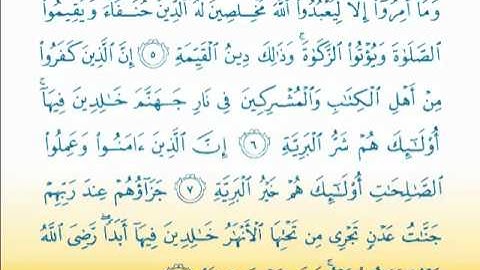 وَمَآ أُمِرُوٓا۟ إِلَّا لِيَعْبُدُوا۟ ٱللَّهَ مُخْلِصِينَ لَهُ ٱلدِّينَ حُنَفَآءَ وَيُقِيمُوا۟
ٱلصَّلَوٰةَ وَيُؤْتُوا۟ ٱلزَّكَوٰةَ ۚ وَذَٰلِكَ دِينُ ٱلْقَيِّمَةِ ٥ إِنَّ ٱلَّذِينَ كَفَرُوا۟
مِنْ أَهْلِ ٱلْكِتَٰبِ وَٱلْمُشْرِكِينَ فِى نَارِ جَهَنَّمَ خَٰلِدِينَ فِيهَآ ۚ
أُو۟لَٰٓئِكَ هُمْ شَرُّ ٱلْبَرِيَّةِ ٦ إِنَّ ٱلَّذِينَ ءَامَنُوا۟ وَعَمِلُوا۟
ٱلصَّٰلِحَٰتِ أُو۟لَٰٓئِكَ هُمْ خَيْرُ ٱلْبَرِيَّةِ ٧ جَزَآؤُهُمْ عِندَ رَبِّهِمْ
جَنَّٰتُ عَدْنٍ تَجْرِى مِن تَحْتِهَا ٱلْأَنْهَٰرُ خَٰلِدِينَ فِيهَآ أَبَدًا ۖ رَّضِىَ ٱللَّهُ